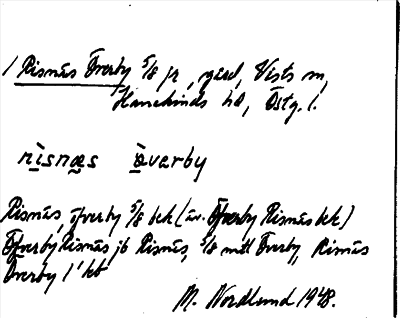 1 Risnäs Överby 5/8 fr, gård, Vists sn,
Hanekinds hd, Östg. l.
rìsnæs ö̀verby
Risnäs, Öfverby 5/8 bek (äv. Öfverby Risnäs bek)
Öfverby Risnäs jb Risnäs, 5/8 mtl Överby, Risnäs
Överby 1' kb
M. Nordlund 1948.